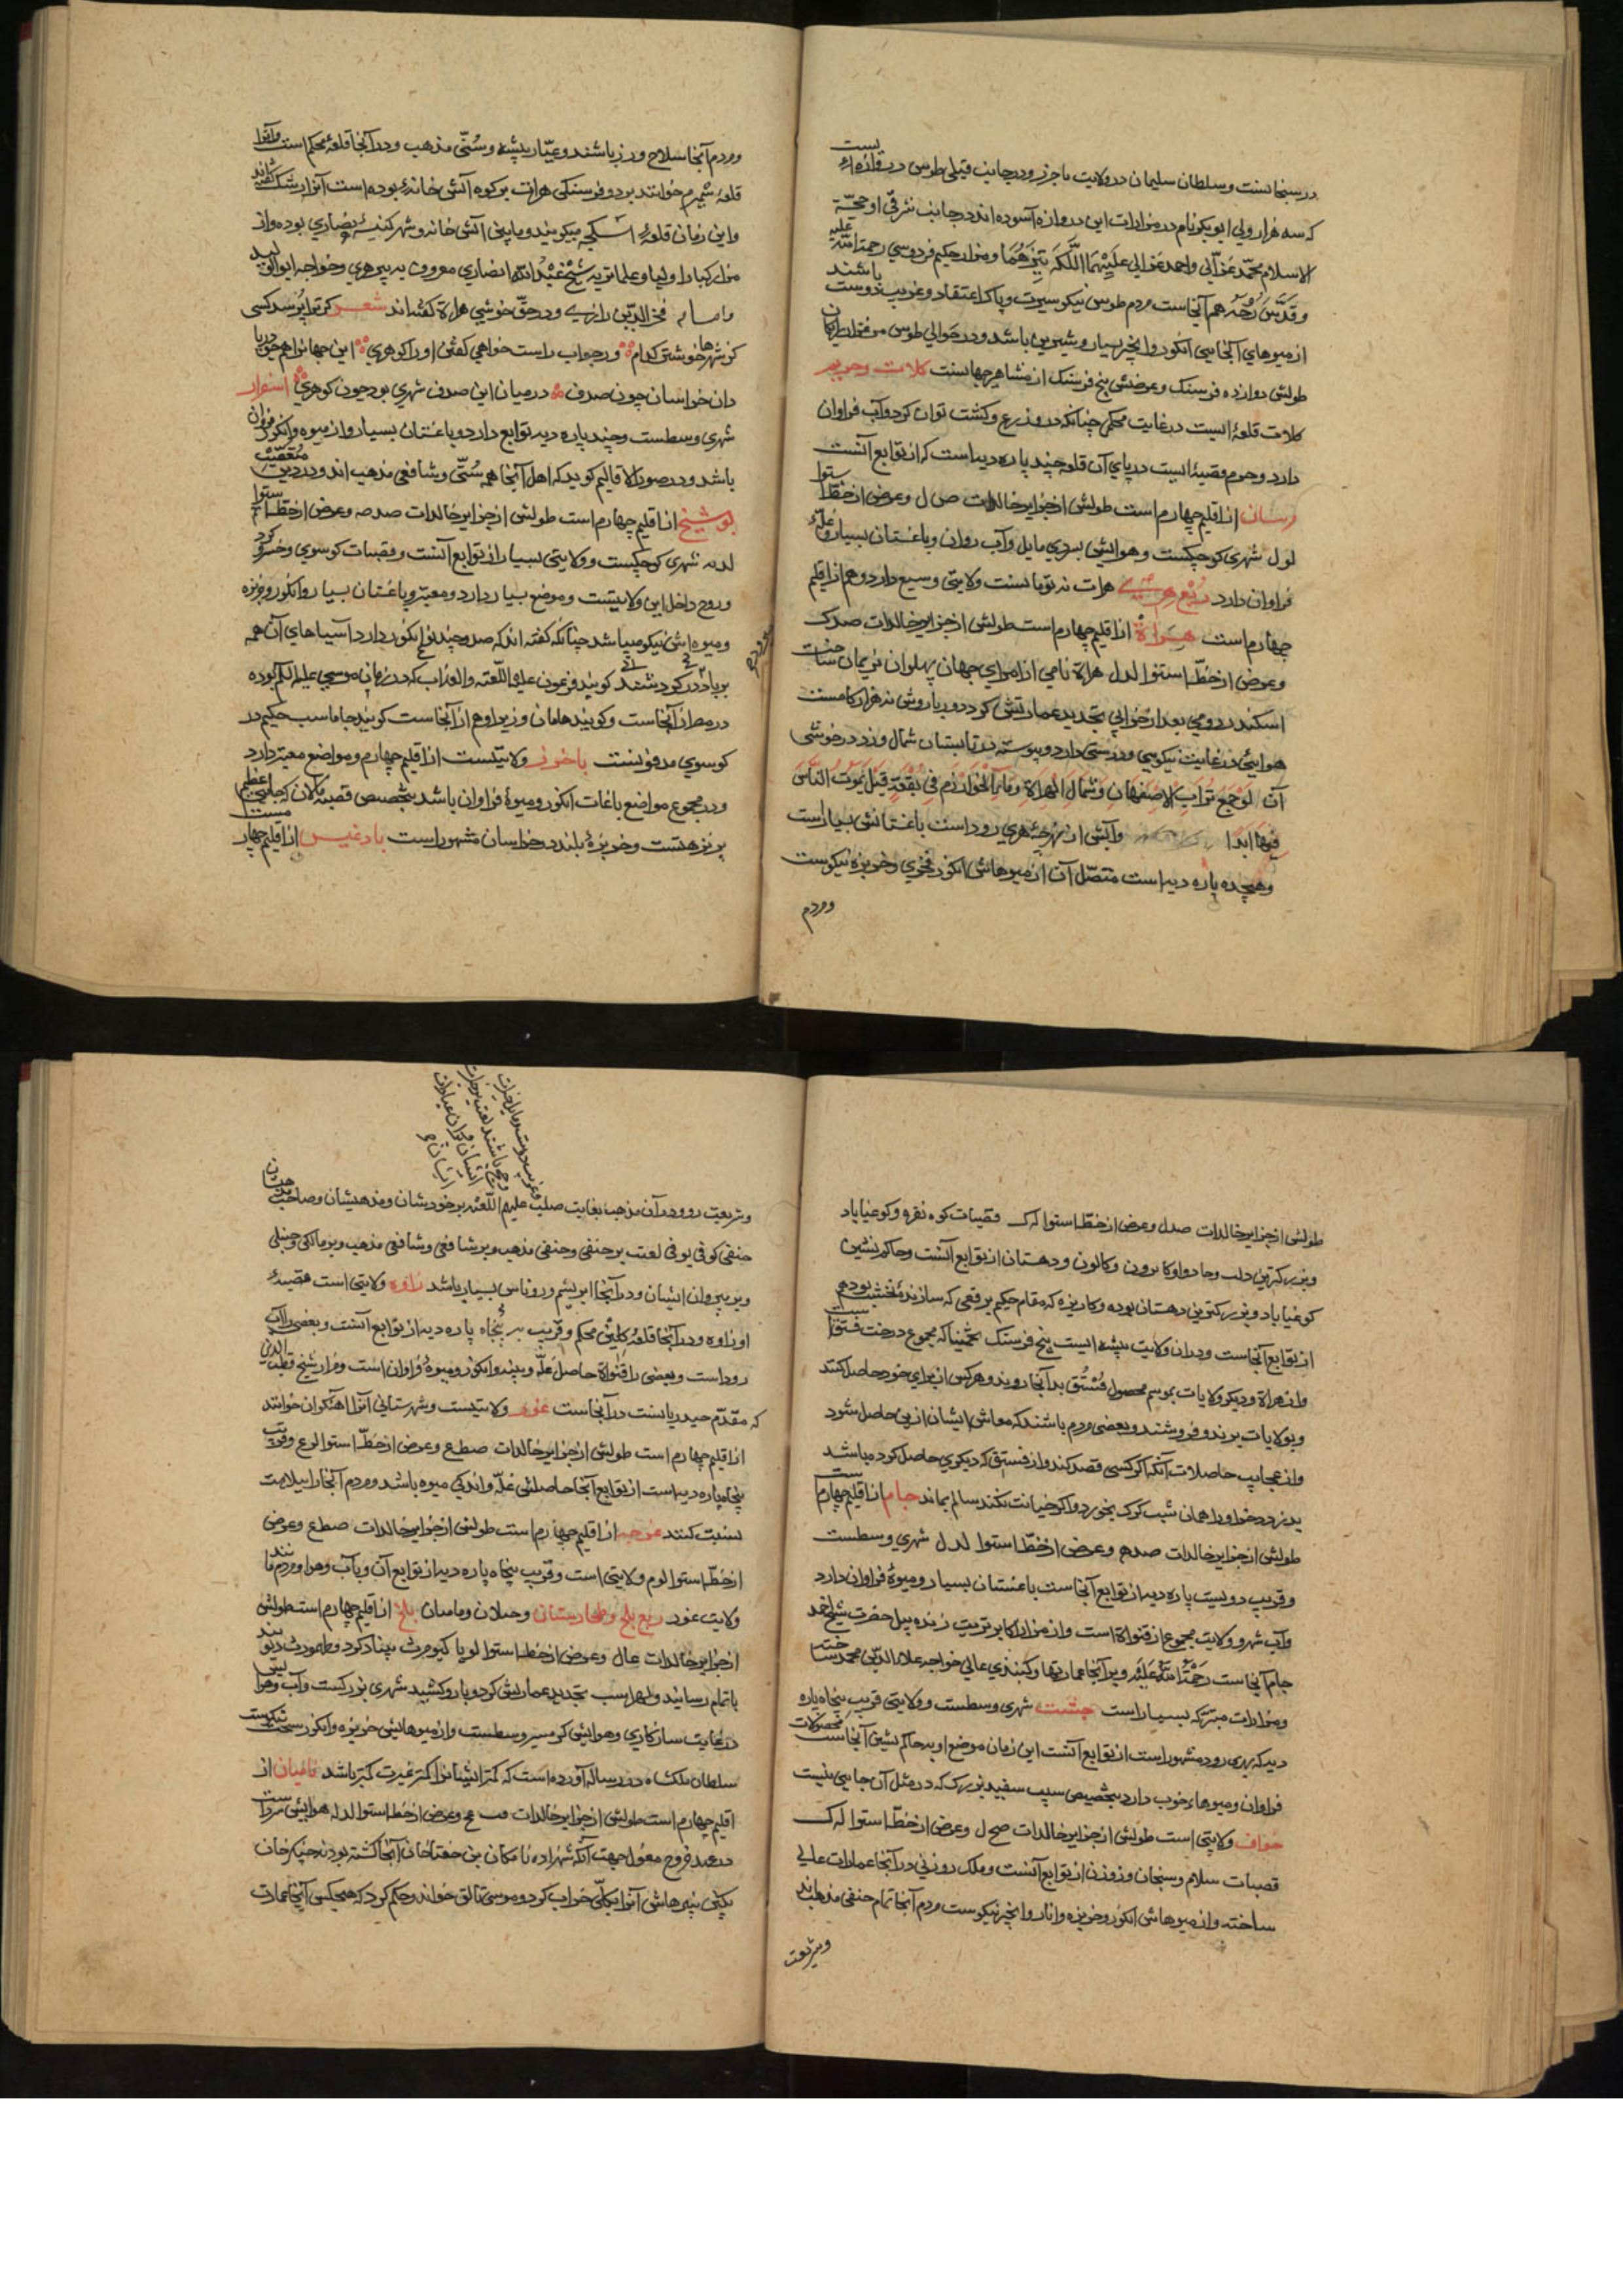 در سنجانست و سلطان سلیمان در ولایت باخرز و در جانب قبلی طوس دروازه‌ایست
که سه هزار ولی ابوبکر نام در مزارات این دروازه آسوده‌اند در جانب شرقی او حجّة
الاسلام محمّد غزالی و احمد غزالی و مزار حکیم فردوسی رحمة الله علیه
و قدّس روحه هم آنجاست مردم طوس نیکو سیرت و پاک اعتقاد و غریب دوست باشند
از میوهای آنجایی انکور و انجیر بسیار و شیرین باشد و در حوالی طوس مرغزار رایکان
طولش دوازده فرسنک و عرضش پنج فرسنک از مشاهیر جهانست کلات و جرم
کلات قلعهٔ ایست در غایت محکمی چنانکه درو زرع و کشت توان کرد و آب فراوان
دارد و جرم قصبهٔ ایست در پای آن قلعه چند پاره دیه است که از توابع آنست
رسان از اقلیم چهارم است طولش از جزایر خالدات ص ل و عرض از خطّ استوا
لول شهری کوچکست و هوایش بسردی مایل و آب روان و باغستان بسیار و غلّهٔ
فراوان دارد ربع هری هرات نه تومانست ولایتی وسیع دارد و هم از اقلیم
چهارم است هراة از اقلیم چهارم است طولش از جزایر خالدات صدک
و عرض از خطّ استوا لدل هراة نامی از امرای جهان پهلوان نریمان ساخت
اسکندر رومی بعد از خرابی تجدید عمارتش کرد دور باروش نه هزار کامست
هوایی در غایت نیکویی و درستی دارد و پیوسته در تابستان شمال وزد در خوشی
آن لو جمع تراب الاصفهان و شمال الهراة و ماء الخوارزم فی بقعة قبل یموت الناس
فیها ابدا و آبش از نهرچهٔ هری رود است باغستانش بسیارست
و هیجده پاره دیه است متصّل آن از میوهاش انکور فخری و خربزه نیکوست
و مردم
و مردم آنجا سلاح ورز باشند و عیّار پیشه و سُنّی مذهب و در آنجا قلعهٔ محکم است و آنرا
قلعهٔ شمیرم خوانند بر دو فرسنکی هرات بر کوه آتش خانهٔ بوده است آنرا ارشک گفته‌اند
و این زمان قلعهٔ اشکجه میکویند و مابین آتش خانه و شهر کنیسهٔ نصاری بوده و از
مزار کبار اولیا و علما تربه شیخ عبد الله انصاری معروف به پیر هری و خواجه ابوالولید
و امام فخر الدّین رازی و در حقّ خوشی هراة کفته‌اند شعر کر ترا پرسد کسی
کز شهرها خوشتر کدام ور جواب راست خواهی کفتن او را کو هری این جهانرا همچو دریا
دان خراسان چون صدف در میان این صدف شهری بود چون کوهری اسفزار
شهری وسطست و چند پاره دیه توابع دارد و باغستان بسیار و از میوه و انکور فراوان
باشد و در صور الاقالیم کوید که اهل آنجا همه سُنّی و شافعی مذهب اند و در دین متعصّب
بوشنج از اقلیم چهارم است طولش از جزایر خالدات صدصه و عرض از خطّ استوا
لدنه شهری کوچکست و ولایتی بسیار از توابع آنست و قصبات کوسوی و خسرو کرد
و روح داخل این ولایتست و موضع بسیار دارد و معتبر و باغستان بسیار و انکور و خربزه
و میوه‌اش نیکو میباشد چنانکه کفته‌اند که صد و چند نوع انکور دارد آسیاهای آن همه
بر باد در کردشند کویند فرعون علیه اللّعنه والعذاب که در زمان موسی علیه السّلام بوده
در مصر از آنجاست و کویند هامان وزیر او هم از آنجاست کویند جاماسب حکیم در
کوسوی مدفونست باخرز ولایتیست از اقلیم چهارم و مواضع معتبر دارد
و در مجموع مواضع باغات انکور و میوهٔ فراوان باشد بتخصیص قصبهٔ مالان که
پر نزهتست و خربزهٔ بلند در خراسان مشهور است بادغیس از اقلیم چهار
طولش از جزایر خالدات صدل و عرض از خطّ استوا له ک قصبات کوه نقره و کوغناباد
و بزرکترین دلب و جاد و او کابرون و کالون و دهستان از توابع آنست و حاکم نشین
کوغناباد و بزرکترین دهستان بوده و کاریزه که مقام حکیم برقعی که سازندهٔ نخشب بود هم
از توابع آنجاست و در آن ولایت بیشه‌ایست پنج فرسنک تخمینا که مجموع درخت فستق است
و از هراة و دیکر ولایات بموسم محصول فُستُق بدآنجا روند و هر کس از برای خود حاصل کنند
و بولایات برند و فروشند و بعضی مردم باشند که معاش ایشان از بن حاصل شود
و از عجایب حاصلات آنکه اکر کسی قصد کند و از فستقی که دیکری حاصل کرده باشد
بدزدد خر او را همان شب کرک بخورد و اکر خیانت نکند سالم بماند جام از اقلیم چهارم است
طولش از جزایر خالدات صدهم و عرض از خطّ استوا لدل شهری وسطست
و قریب دویست پاره دیه از توابع آنجاست باغستان بسیار و میوهٔ فراوان دارد
و آب شهر و ولایت مجموع از قنواة است و از مزار اکابر تربت زنده پیل حضرت شیخ احمد
جام آنجاست رحمة الله علیه و بر آنجا عمارتها و کنبذی عالی خواجه علاء الدّین محمّد ساخته
و مزارات متبرّکه بسیار است چشت شهری وسطست و ولایتی قریب پنجاه پاره
دیه که بهری رود مشهور است از توابع آنست این زمان موضع اوبه حاکم نشین آنجاست محصولات
فراوان و میوهاء خوب دارد بتخصیص سیب سفید بزرک که در مثل آن جایی نیست
خواف ولایتی است طولش از جزایر خالدات صح ل و عرض از خطّ استوا له ک
قصبات سلام و سنجان و زوزن از توابع آنست و ملک زوزنی در آنجا عمارات عالی
ساخته و از میوهاش انکور و خربزه و انار و انجیر نیکوست مردم آنجا تمام حنفی مذهب‌اند
و شریعت رو و در آن مذهب بغایت صلب علیهم اللّعنه بر خودیشان و مذهبشان و صاحب
حنفی کوفی یوفی لعنت بر حنفی و حنفی مذهب و بر شافعی و شافعی مذهب و بر مالکی و حنبلی
و بر پیروان ایشان و در آنجا ابریشم و روناس بسیار باشد زاوه ولایتی است قصبهٔ
او زاوه و در آنجا قلعهٔ کلین محکم و قریب به پنجاه پاره دیه از توابع آنست و بعضی را آب
رود است و بعضی را قنواة حاصل غلّه و پنبه و انکور و میوهٔ فراوان است و مزار شیخ قطب الدین
که مقدّم حیدریانست در آنجاست غور ولایتیست و شهرستانی آنرا آهنکران خوانند
از اقلیم چهارم است طولش از جزایر خالدات صطع و عرض از خطّ استوا لوع و قریب
پنجاه پاره دیه است از توابع آنجا حاصلش غلّه و اندکی میوه باشد و مردم آنجا را ببلاهت
نسبت کنند غرجه از اقلیم چهارم است طولش از جزایر خالدات صطع و عرض
از خطّ استوا لوم ولایتی است و قریب پنجاه پاره دیه از توابع آن و با آب و هوا و مردم مانند
ولایت غور ربع بلخ و طخارستان و ختلان و بامیان بلخ از اقلیم چهارم است طولش
از جزایر خالدات و عرض از خطّ استوا لوما کیومرث بنیاد کرد و طهمورث دیوبند
باتمام رسانید و لهراسب تجدید عمارتش کرد و بارو کشید شهری بزرکست و آب و هوایی
در غایت سازکاری و هوایش کرمسیر وسطست و از میوهایش خربزه و انکور سخت نیکوست
سلطان ملکشاه در رساله آورده است که اکثر ایشانرا غیرت کمتر باشد بامیان از
اقلیم چهارم است طولش از جزایر خالدات و عرض از خطّ استوا لدله هوایش سرد است
در عهد خروج مغول بجهت آنکه شهزاده ماتکان بن جغتاخان آنجا کشته بود جنکزخان
آنرا بکلّی خراب کرد و موبالق خواند و حکم کرد که هیچکس آنجا عمارت